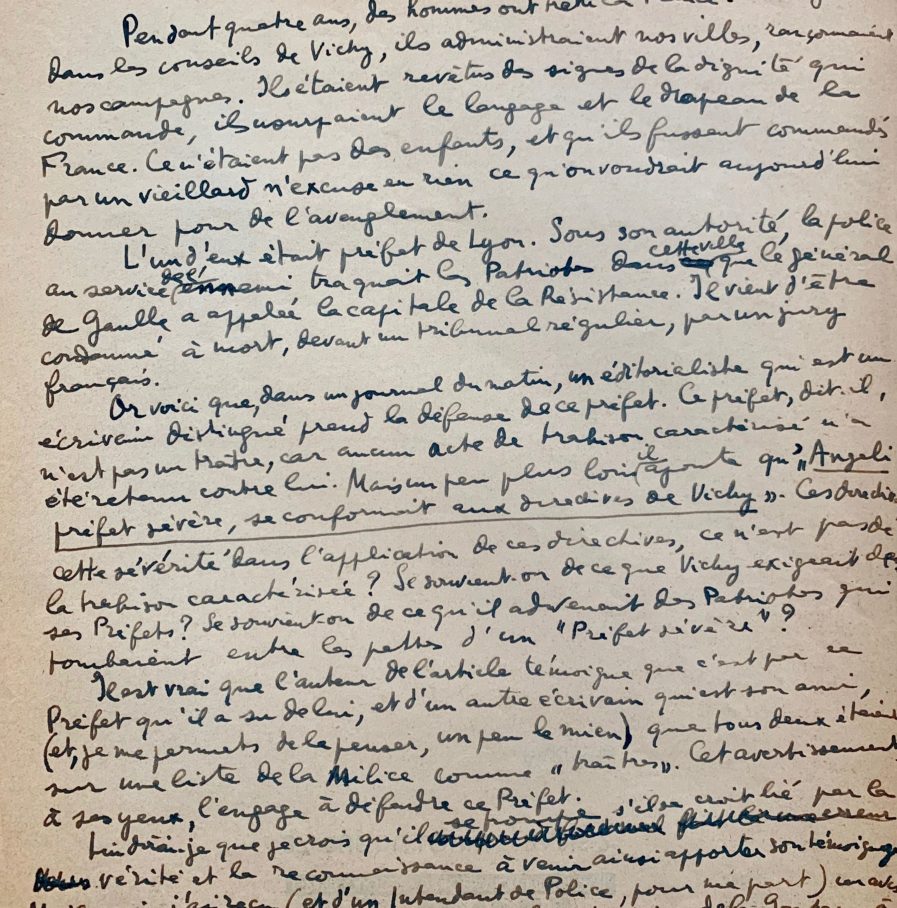 Pendant quatre ans, des hommes ont trahi la
dans les conseils de Vichy, ils administraient nos villes, rançonnaient
nos campagnes. Ils étaient revêtus des signes de la dignité qui
commande, ils usurpaient le langage et le drapeau de la
France. Ce n'étaient pas des enfants, et qu'ils fussent commandés
par un vieillard n'excuse en rien ce qu'on voudrait aujourd'hui
donner pour de l'aveuglement.
L'un d'eux était préfet de Lyon. Sous son autorité, la police
au service de l'ennemi traquait les Patriotes dans cette ville que le général
de Gaulle a appelée la capitale de la Résistance. Il vient d'être
condamné à mort, devant un tribunal régulier, par un jury
français.
Or voici que, dans un journal du matin, un éditorialiste qui est un
écrivain distingué prend la défense de ce préfet. Ce préfet, dit-il,
n'est pas un traître, car aucun acte de trahison caractérisé n'a
été retenu contre lui. Mais un peu plus loin il ajoute qu'„Angeli
préfet sévère, se conformait aux directives de Vichy". Ces directives
cette sévérité dans l'application de ces directives, ce n'est pas de
la trahison caractérisée ? Se souvient-on de ce que Vichy exigeait de
ses Préfets ? Se souvient-on de ce qu'il advenait des Patriotes qui
tombaient entre les pattes d'un "Préfet sévère" ?
Il est vrai que l'auteur de l'article témoigne que c'est par ce
Préfet qu'il a su de lui, et d'un autre écrivain qui est son ami,
(et, je me permets de le penser, un peu le mien) que tous deux étaient
sur une liste de la Milice comme „traîtres". Cet avertissement
à ses yeux, l'engage à défendre ce Préfet.
Lui dirai-je que je crois qu'il se trompe s'il se croit lié par la
erreur
vérité et la reconnaissance à venir ainsi apporter son témoignage
(et d'un Intendant de Police, pour ma part) un